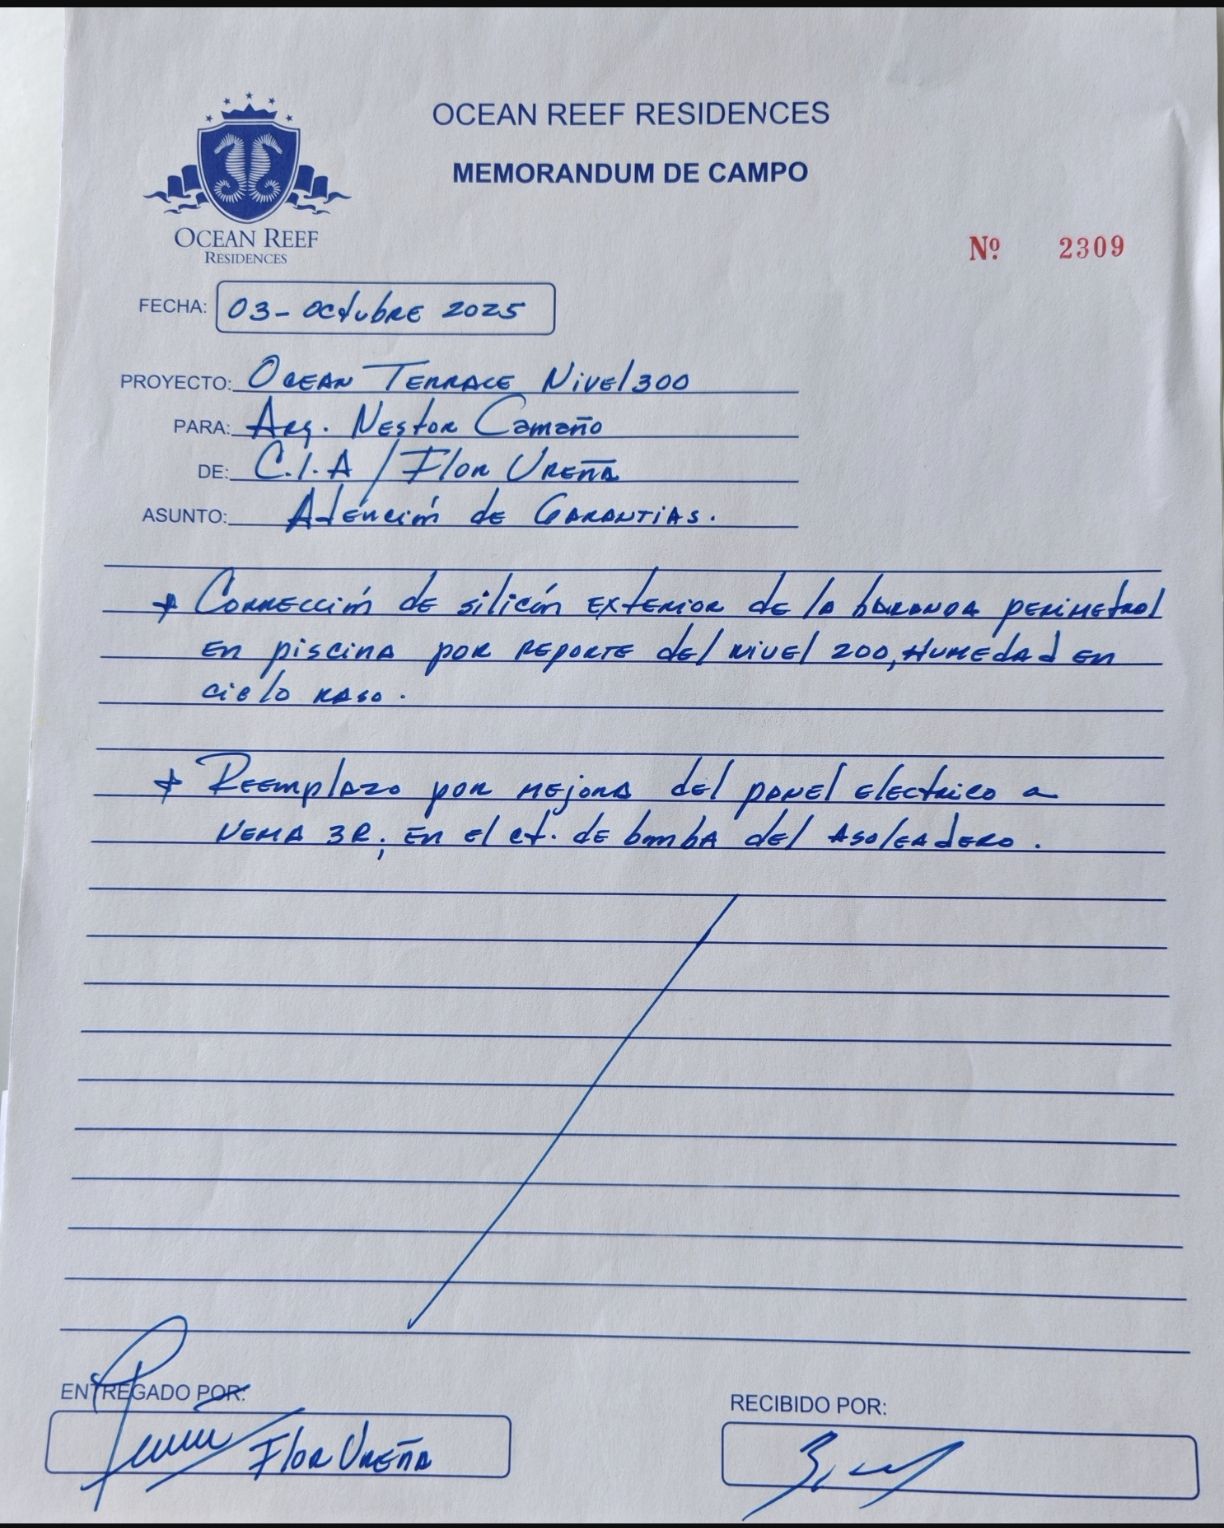 OCEAN REEF RESIDENCES
MEMORANDUM DE CAMPO
OCEAN REEF
RESIDENCES
Nº 2309
FECHA: 03-Octubre 2025
PROYECTO: Ocean Terrace Nivel 300
PARA: Arq. Nestor Camaño
DE: C.I.A / Flor Ureña
ASUNTO: Atención de Garantias.
* Corrección de silicón exterior de la baranda perimetral
en piscina por reporte del nivel 200, humedad en
cielo raso.
* Reemplazo por mejora del panel electrico a
NEMA 3R; en el ct. de bomba del asoleadero.
ENTREGADO POR:
Flor Ureña
RECIBIDO POR: